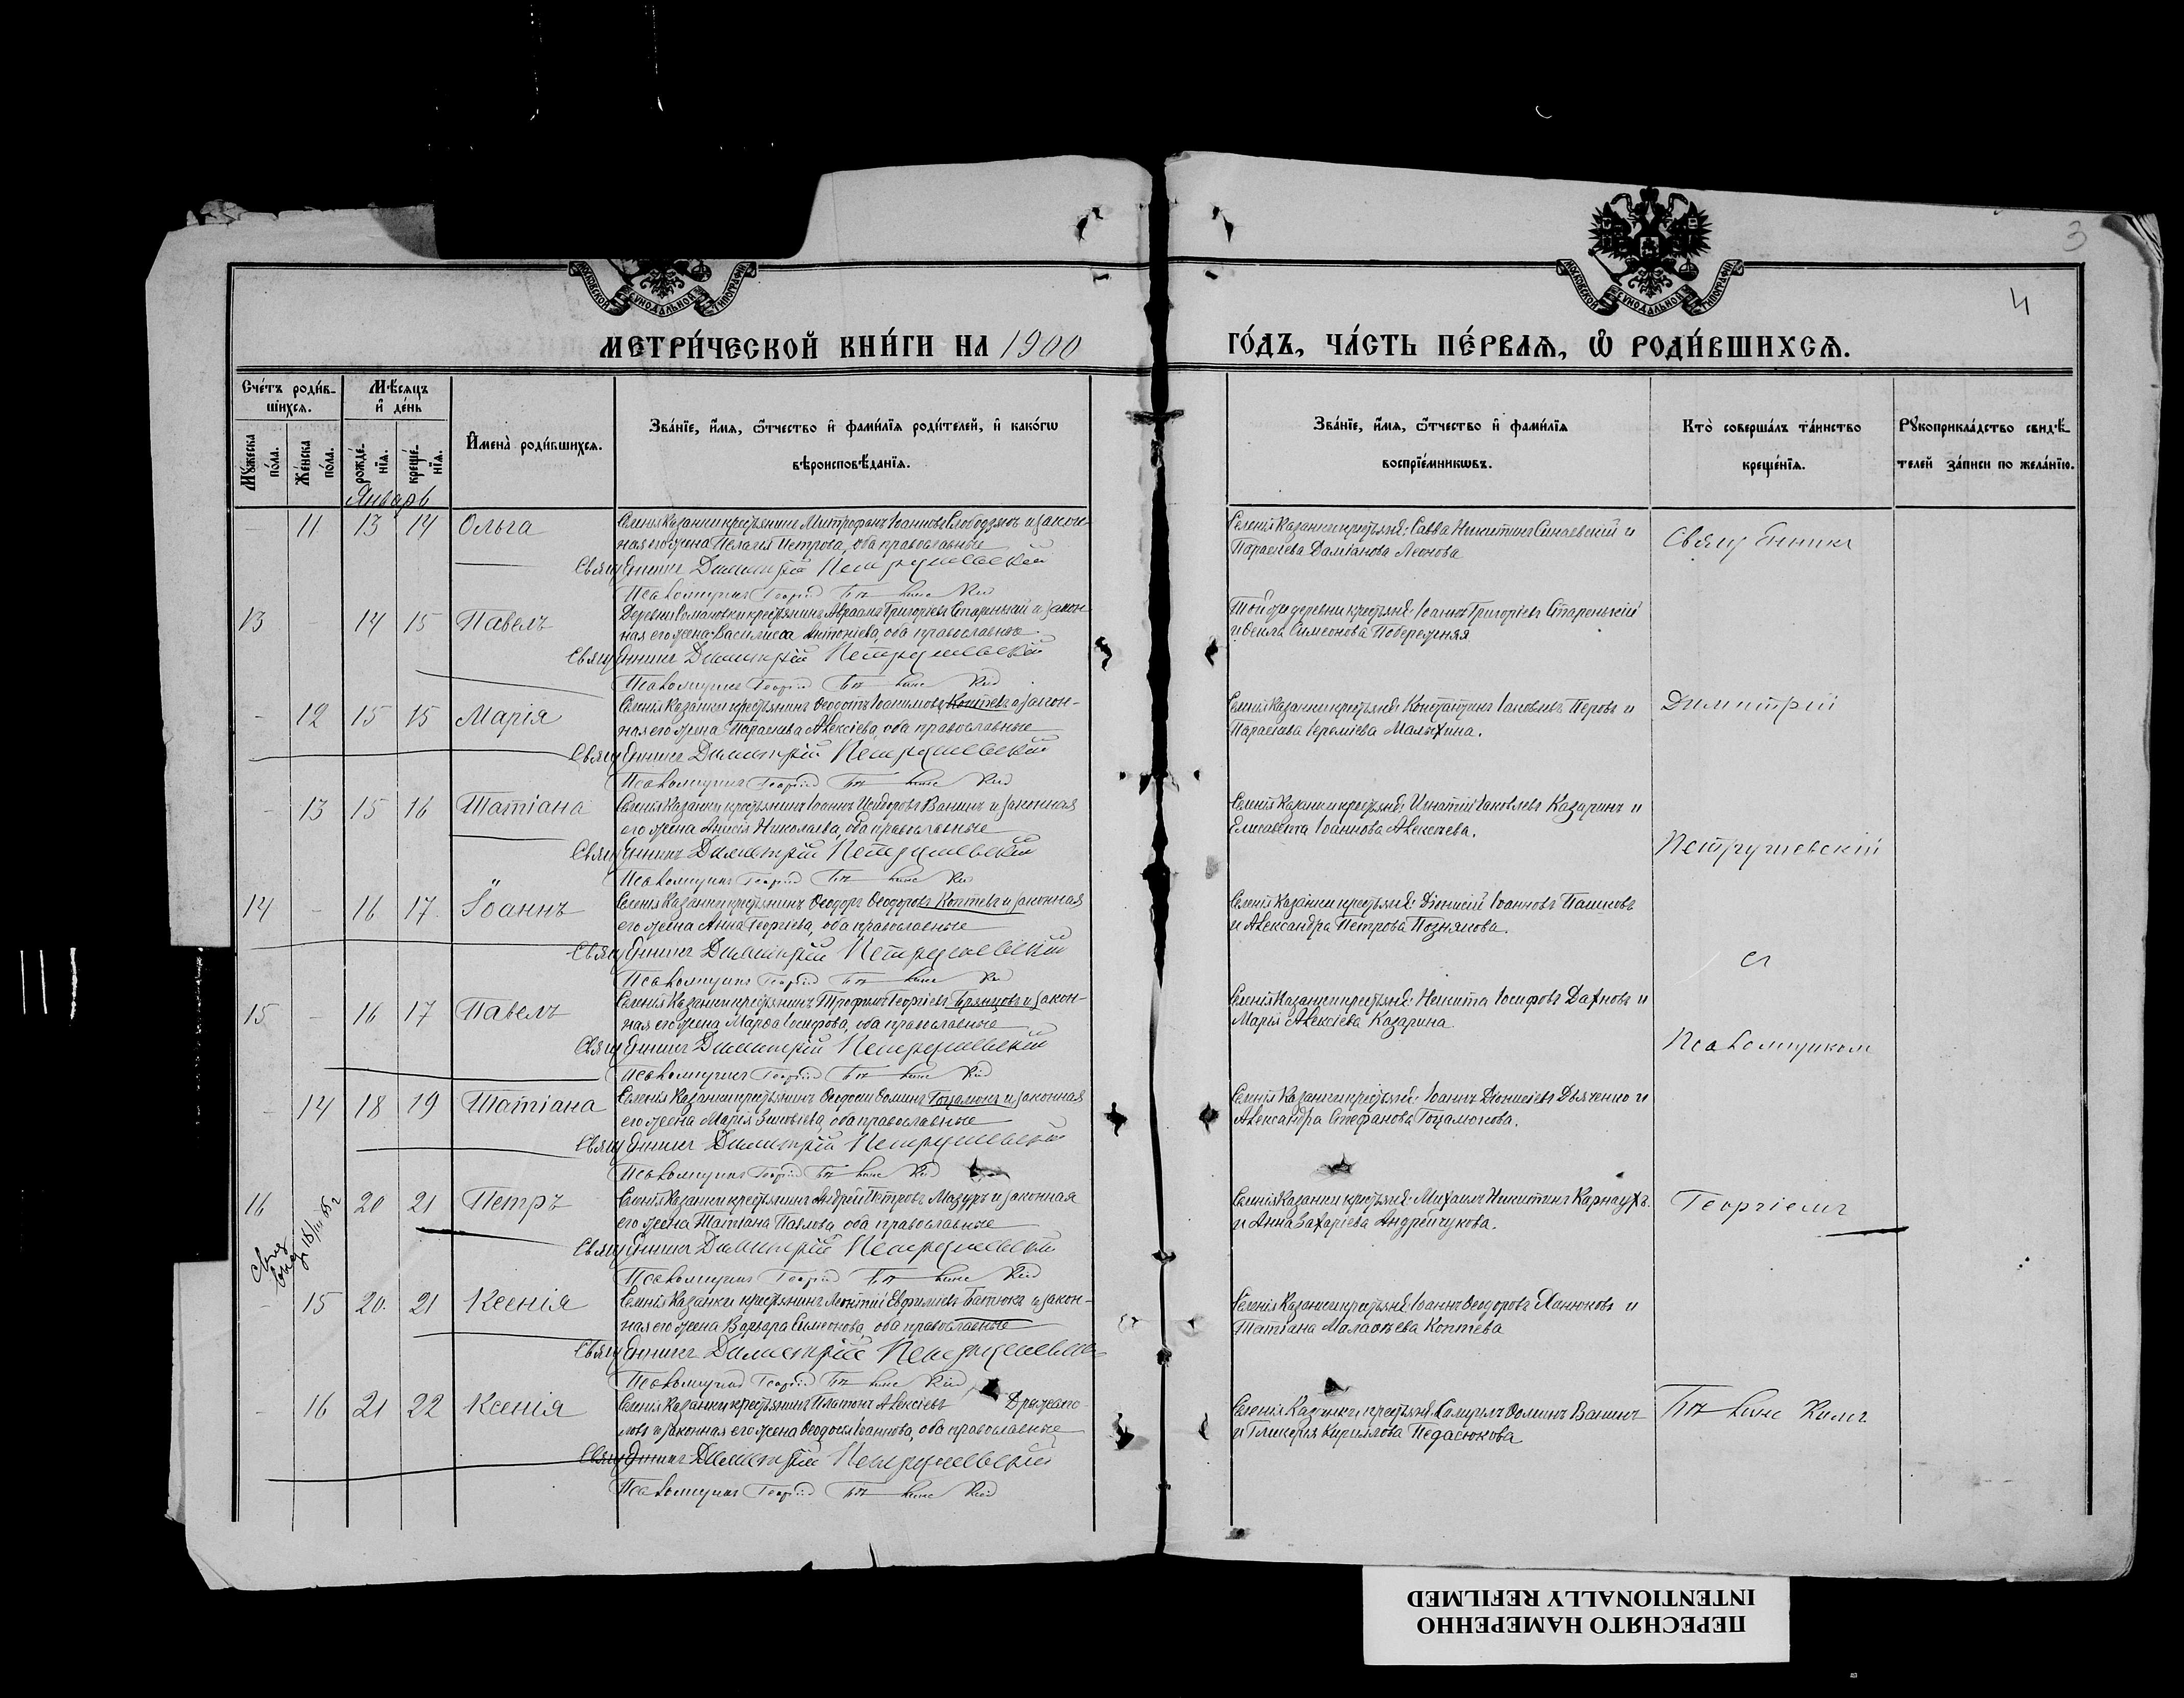 3
4
МОСКОВСКОЙ СѴНОДАЛЬНОЙ ТИПОГРАФІИ
МОСКОВСКОЙ СѴНОДАЛЬНОЙ ТИПОГРАФІИ
МЕТРИ́ЧЕСКОЙ КНИ́ГИ НА 1900
ГО́ДЪ, ЧА́СТЬ ПЕ́РВАѦ, Ѽ РОДИ́ВШИХСѦ.
Сче́тъ роди́в-
шихсѧ.
Мѣ́сѧцъ
и҆ де́нь
Мꙋ́жеска
по́ла.
Же́нска
по́ла.
рожде́-
нїѧ.
креще́-
нїѧ.
И҆мена̀ роди́вшихсѧ.
Зва́нїе, и҆́мѧ, ѿ́чество и҆ фами́лїѧ роди́телей, и҆ како́гѡ
вѣроисповѣ́данїѧ.
Зва́нїе, и҆́мѧ, ѿ́чество и҆ фами́лїѧ
воспрїе́мникѡвъ.
Кто̀ соверша́лъ та́инство
креще́нїѧ.
Рꙋкоприкла́дство свидѣ́-
телей за́писи по жела́нїю.
Январь
- 11 13 14 Ольга
Селенія Казанки крестьянинъ Митрофанъ Іоанновъ Слободзянъ и закон-
ная его жена Пелагія Петрова, оба православные
Священникъ Димитрій Петрушевскій
Псаломщикъ Георгій
Селенія Казанки крестьяне: Савва Никитинъ Синаевскій и
Параскева Даміанова Леонова
Священникъ
13 14 15 Павелъ
Деревни Семановки крестьянинъ Авраамъ Григоріевъ Старенькій и закон-
ная его жена Василиса Антоніева, оба православные
Священникъ Димитрій Петрушевскій
Псаломщикъ Георгій
Той же деревни крестьяне: Іоаннъ Григоріевъ Старенькій
и Ѳекла Симеонова Побережняя
- 12 15 15 Марія
Селенія Казанки крестьянинъ Ѳеодотъ Іоакимовъ Коптевъ и закон-
ная его жена Параскева Алексіева, оба православные
Священникъ Димитрій Петрушевскій
Псаломщикъ Георгій
Селенія Казанки крестьяне: Константинъ Іаковлевъ Перовъ и
Параскева Іереміева Малыхина.
Димитрій
- 13 15 16 Татіана
Селенія Казанки крестьянинъ Іоаннъ Исидоровъ Ванинъ и законная
его жена Анисія Николаева, оба православные
Священникъ Димитрій Петрушевскій
Псаломщикъ Георгій
Селенія Казанки крестьяне: Игнатій Іаковлевъ Казаринъ и
Елисавета Іоаннова Алексѣева.
Петрушевскій
14 - 16 17 Іоаннъ
Селенія Казанки крестьянинъ Ѳеодоръ Ѳеодоровъ Коптевъ и законная
его жена Анна Георгіева, оба православные
Священникъ Димитрій Петрушевскій
Псаломщикъ Георгій
Селенія Казанки крестьяне: Діонисій Іоанновъ Пашковъ
и Александра Петрова Познякова.
съ
15 - 16 17 Павелъ
Селенія Казанки крестьянинъ Трофимъ Георгіевъ Брянцовъ и закон-
ная его жена Марѳа Іосифова, оба православные
Священникъ Димитрій Петрушевскій
Псаломщикъ Георгій
Селенія Казанки крестьяне: Никита Іосифовъ Дахновъ и
Марія Алексіева Казарина
Псаломщикомъ
- 14 18 19 Татіана
Селенія Казанки крестьянинъ Ѳеодосій Ѳоминъ Гоцалюкъ и законная
его жена Марія Зиновіева, оба православные
Священникъ Димитрій Петрушевскій
Псаломщикъ Георгій
Селенія Казанки крестьяне: Іоаннъ Діонисіевъ Дьяченко и
Александра Стефанова Гоцалюкова.
16 20 21 Петръ
Селенія Казанки крестьянинъ Андрей Петровъ Мазуръ и законная
его жена Татіана Павлова, оба православные
Священникъ Димитрій Петрушевскій
Псаломщикъ Георгій
Селенія Казанки крестьяне: Михаилъ Никитинъ Карнаухъ
и Анна Захаріева Андрейчукова.
Георгіемъ
- 15 20 21 Ксенія
Селенія Казанки крестьянинъ Леонтій Евфиміевъ Батюкъ и закон-
ная его жена Варвара Симеонова, оба православные
Священникъ Димитрій Петрушевскій
Псаломщикъ Георгій
Селенія Казанки крестьяне: Іоаннъ Ѳеодоровъ Панюковъ и
Татіана Малаѳѣева Коптева
- 16 21 22 Ксенія
Селенія Казанки крестьянинъ Платонъ Алексіевъ
ловъ и законная его жена Ѳеодосія Іоаннова, оба православные
Священникъ Димитрій Петрушевскій
Псаломщикъ Георгій
Селенія Казанки крестьяне: Самуилъ Ѳоминъ Ванинъ
и Гликерія Кириллова Педасюкова
ПЕРЕСНЯТО НАМЕРЕННО
INTENTIONALLY REFILMED